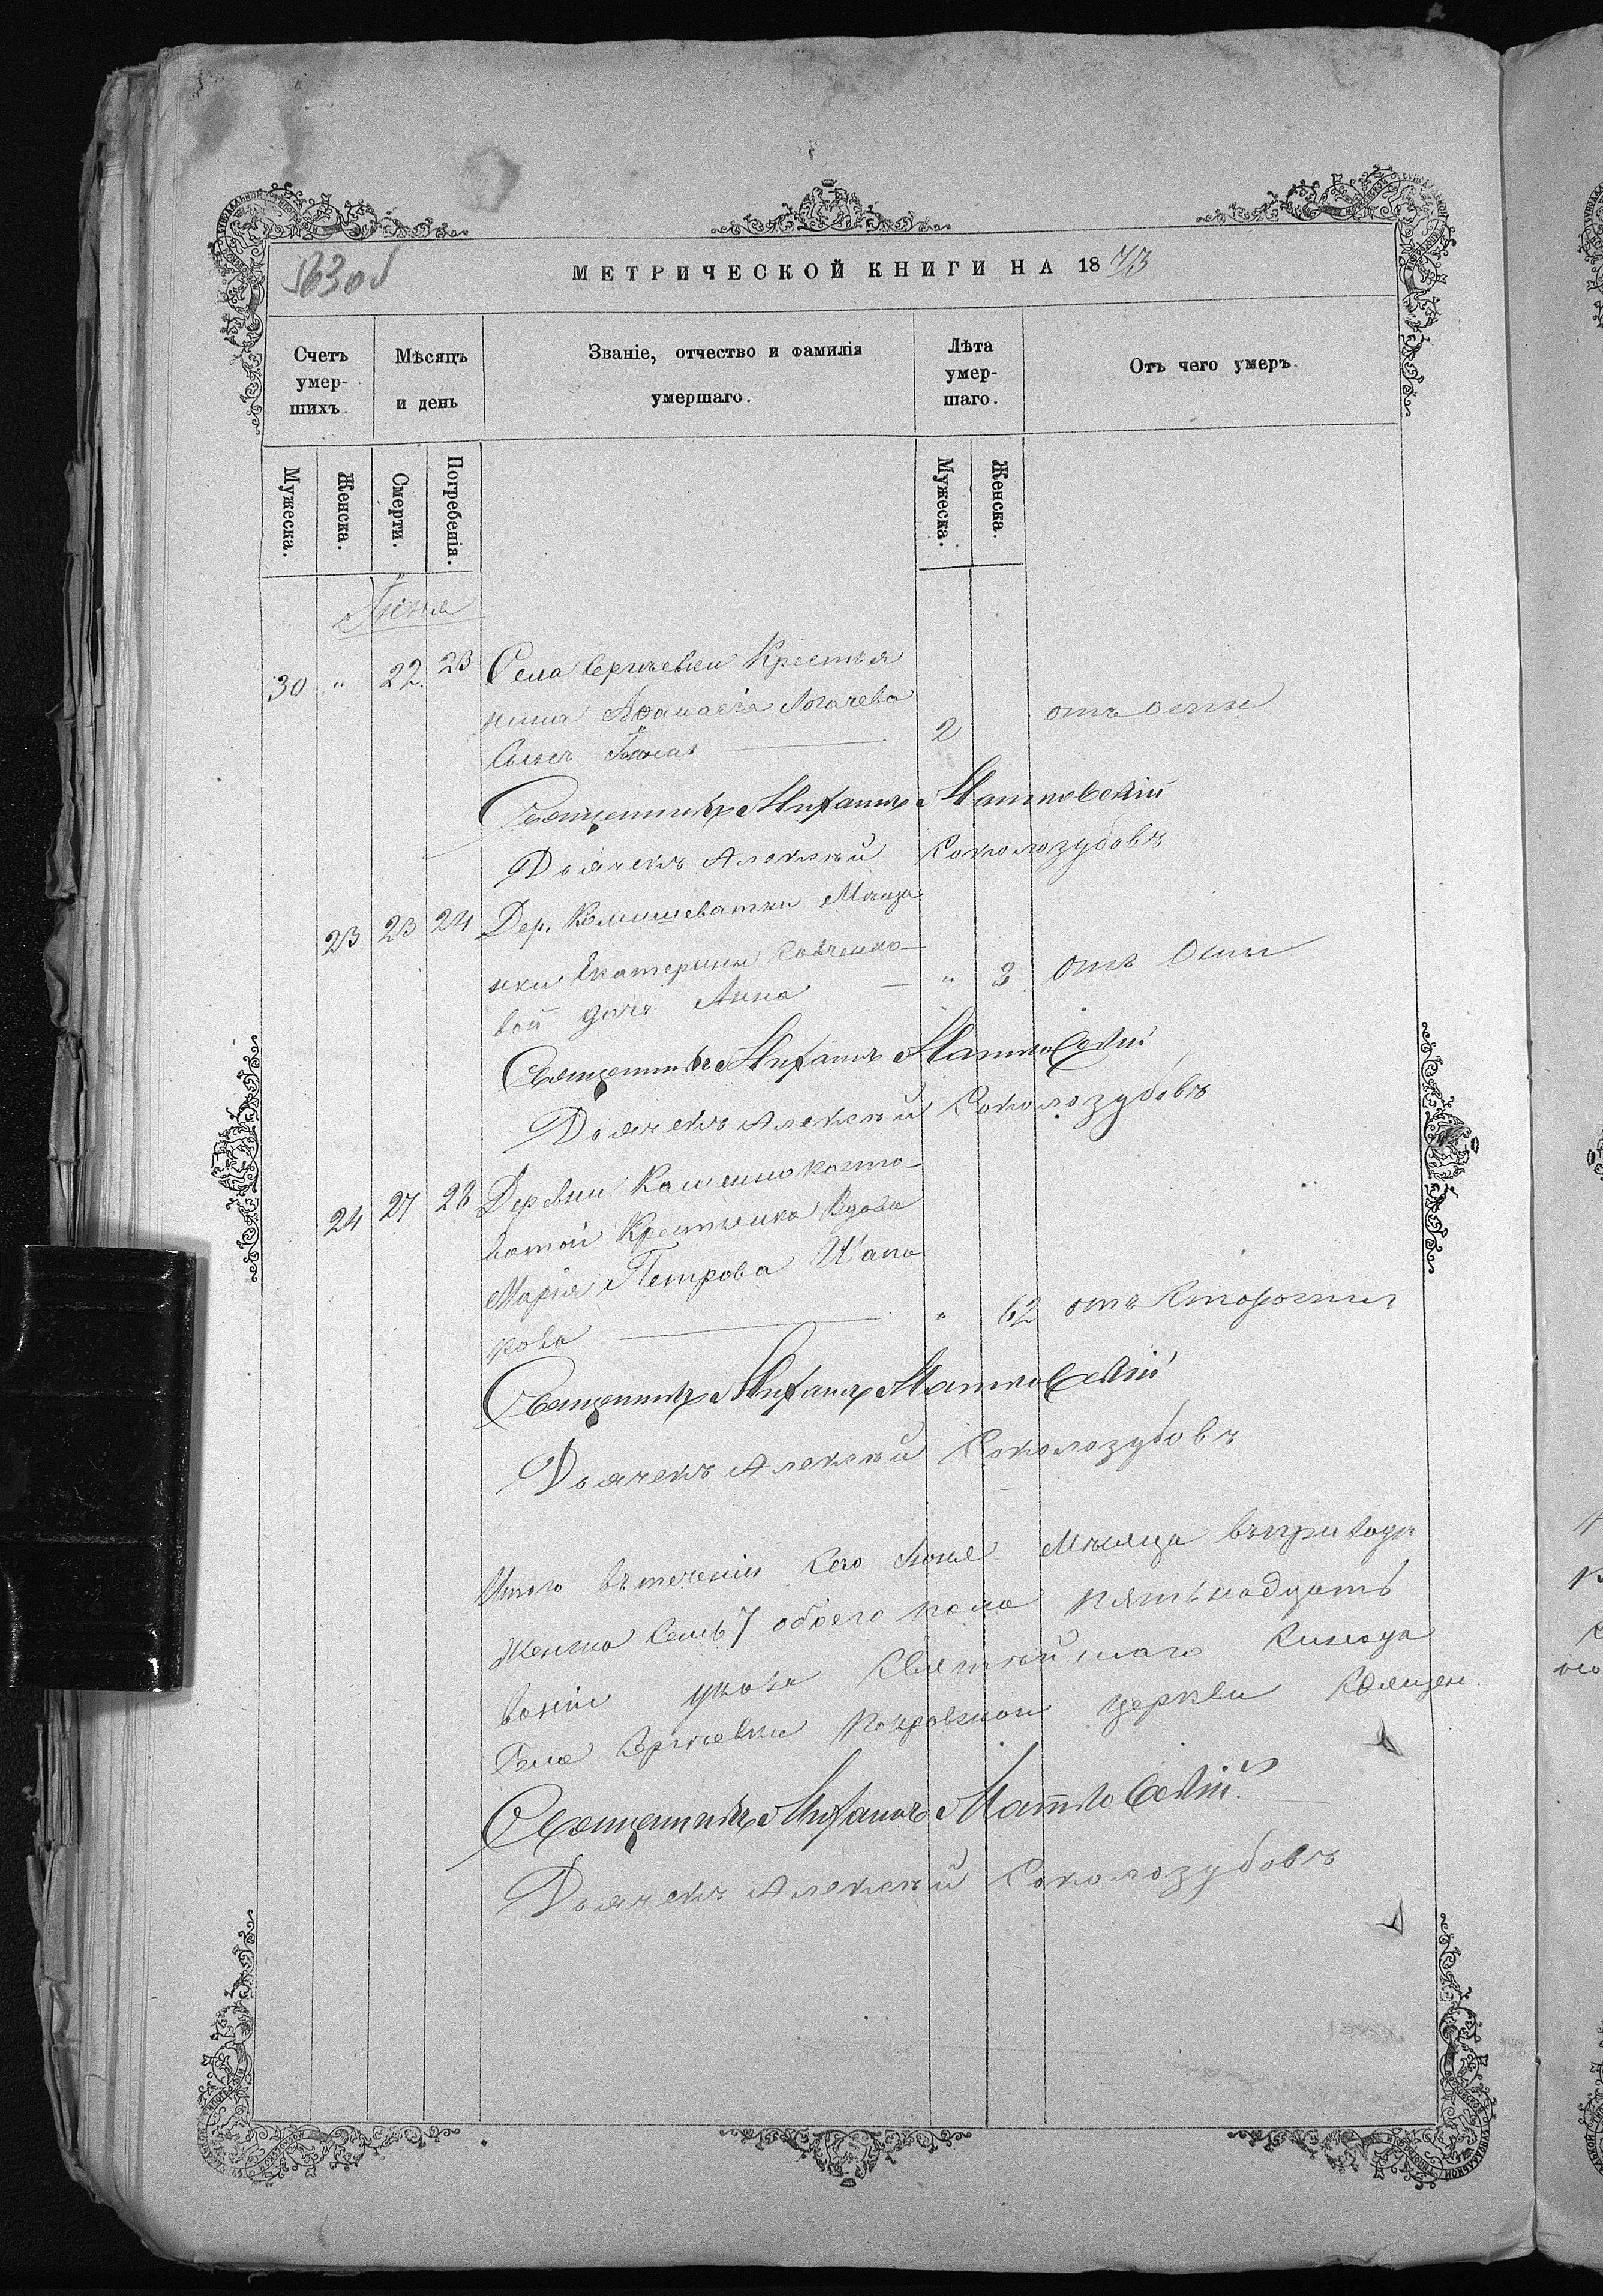 МЕТРИЧЕСКОЙ КНИГИ НА 1873
Счетъ умер-шихъ.
Мѣсяцъ и день
Званіе, отчество и фамилія умершаго.
Лѣта умер-шаго.
Отъ чего умеръ.
Мужеска.
Женска.
Смерти.
Погребенія.
Мужеска.
Женска.
Іюня
30 " 22 23 Села Сергѣевки Крестья
нина Аѳанасія Логачева
сынъ 2 отъ оспы
Священникъ Михаилъ Матковскій
Дьячекъ Алексѣй Соколозубовъ
23 23 24 Дер. Камышеватки Мѣща
нки Екатерины Савченко-
вой дочь Анна " 3 отъ Оспы
Священникъ Михаилъ Матковскій
Дьячекъ Алексѣй Соколозубовъ
24 27 28 Деревни
ватой Крестьянка Вдова
Марія Петрова Шапо
кова " 62 отъ Старости
Священникъ Михаилъ Матковскій
Дьячекъ Алексѣй Соколозубовъ
Итого въ теченіи сего Іюня Мѣсяца
Женска семь 7 обоего пола пятьнадцать
ваніи указа Святѣйшаго Синода
Села Сергѣевки Покровской церкви Священ
Священникъ Михаилъ Матковскій
Дьячекъ Алексѣй Соколозубовъ